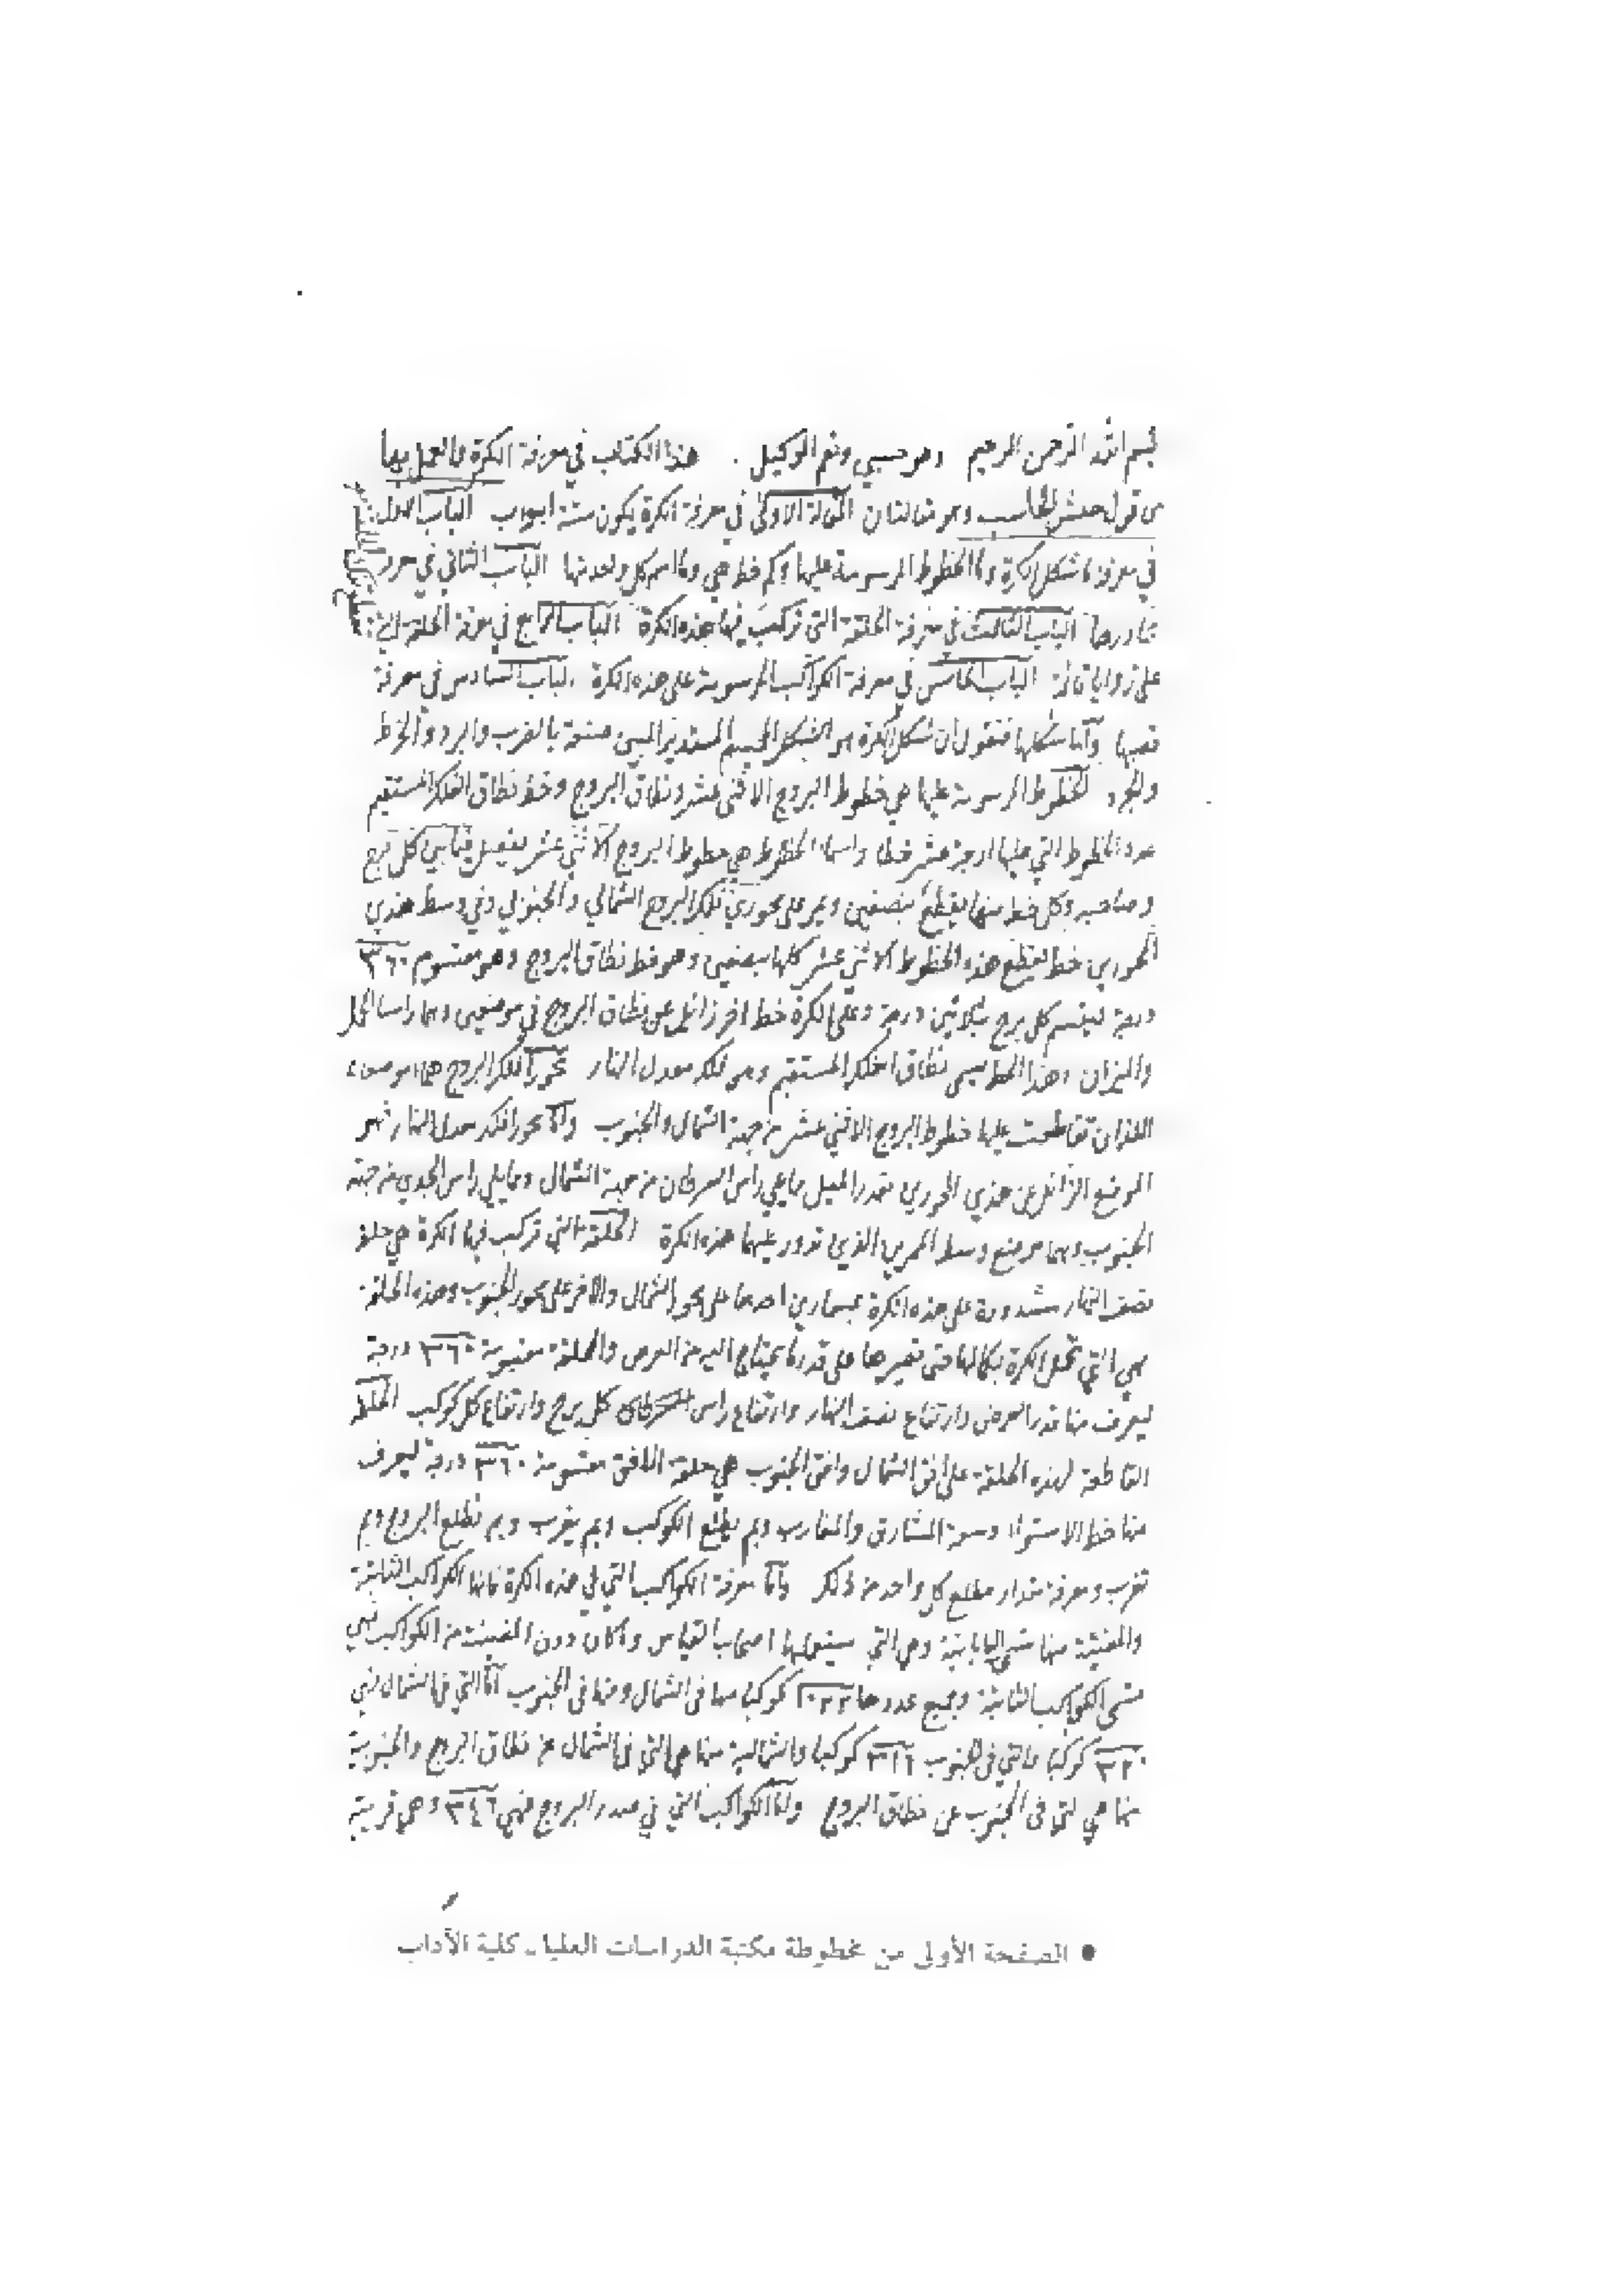 بسم الله الرحمن الرحيم وهو حسبي ونعم الوكيل . هذا الكتاب في معرفة الكرة والعمل بها
من قول حبش الحاسب وهو مقالتان المقالة الاولى في معرفة الكرة يكون ستة ابواب الباب الاول
في معرفة ما شكل الكرة وما الخطوط المرسومة عليها وكم خط هي وما اسم كل واحد منها الباب الثاني في معرفة
محاورها الباب الثالث في معرفة الحلقة التي تركب فيها هذه الكرة الباب الرابع في معرفة الحلقة التي
على زوايا قائمة الباب الخامس في معرفة الكواكب المرسومة على هذه الكرة الباب السادس في معرفة
واما شكلها فنقول ان شكل الكرة هو الشكل المجسم المستدير
الخطوط المرسومة عليها هي خطوط البروج الاثني عشر ونطاق البروج وخط نطاق الفلك المستقيم
عدد الخطوط التي عليها اربعة عشر خطا واسماء الخطوط هي خطوط البروج الاثني عشر يفصل فيما بين كل برج
وصاحبه وكل خط منها يقطع بنصفين ويمر على محوري فلك البروج الشمالي والجنوبي وفي وسط هذي
المحورين خط يقطع هذه الخطوط الاثني عشر كلها بنصفين وهو خط نطاق البروج وهو مقسوم ٣٦٠
درجة ليقسم كل برج بثلاثين درجة وعلى الكرة خط اخر زائل عن نطاق البروج في موضعين وهما راسا الحمل
والميزان وهذا الخط يسمى نطاق الفلك المستقيم وهو فلك معدل النهار محورا فلك البروج هما موضعا
اللذان تقاطعت عليها خطوط البروج الاثني عشر من جهة الشمال والجنوب واما محورا فلك معدل النهار فهو
الموضع الزائل عن هذي المحورين بقدر الميل مما يلي راس السرطان من جهة الشمال ومما يلي راس الجدي من جهة
الجنوب وهما موضع وسط المحورين الذي تدور عليهما هذه الكرة الحلقة التي تركب فيها الكرة هي حلقة
نصف النهار مشدودة على هذه الكرة بمسمارين احدهما على محور الشمال والاخر على محور الجنوب وهذه الحلقة
هي التي تحمل الكرة بكمالها حتى تصيرها على قدر ما يحتاج اليه من العرض والحلقة مقسومة ٣٦٠ درجة
ليعرف منها قدر العرض وارتفاع نصف النهار وارتفاع راس السرطان كل برج وارتفاع كل كوكب الحلقة
القاطعة لهذه الحلقة على افق الشمال وافق الجنوب هي حلقة الافق مقسومة ٣٦٠ درجة ليعرف
منها خط الاستواء وسعة المشارق والمغارب وبم يطلع الكوكب وبم يغرب وبم تطلع البروج وبم
تغرب ومعرفة مقدار مطلع كل واحد من ذلك واما معرفة الكواكب التي في هذه الكرة فانها الكواكب الثابتة
والمضيئة منها تسمى البابانية وهي التي يستعملها اصحاب القياس وما كان دون المضيئة من الكواكب فهي
تسمى الكواكب الثابتة وجميع عددها ١٠٢٢ كوكبا منها في الشمال ومنها في الجنوب اما التي في الشمال فهي
٣٦٠ كوكبا والتي في الجنوب ٣١٦ كوكبا والشمالية منها هي التي في الشمال عن نطاق البروج والجنوبية
منها هي التي في الجنوب عن نطاق البروج واما الكواكب التي في صدر البروج فهي ٣٤٦ وهي قريبة
• الصفحة الأولى من مخطوطة مكتبة الدراسات العليا ـ كلية الآداب